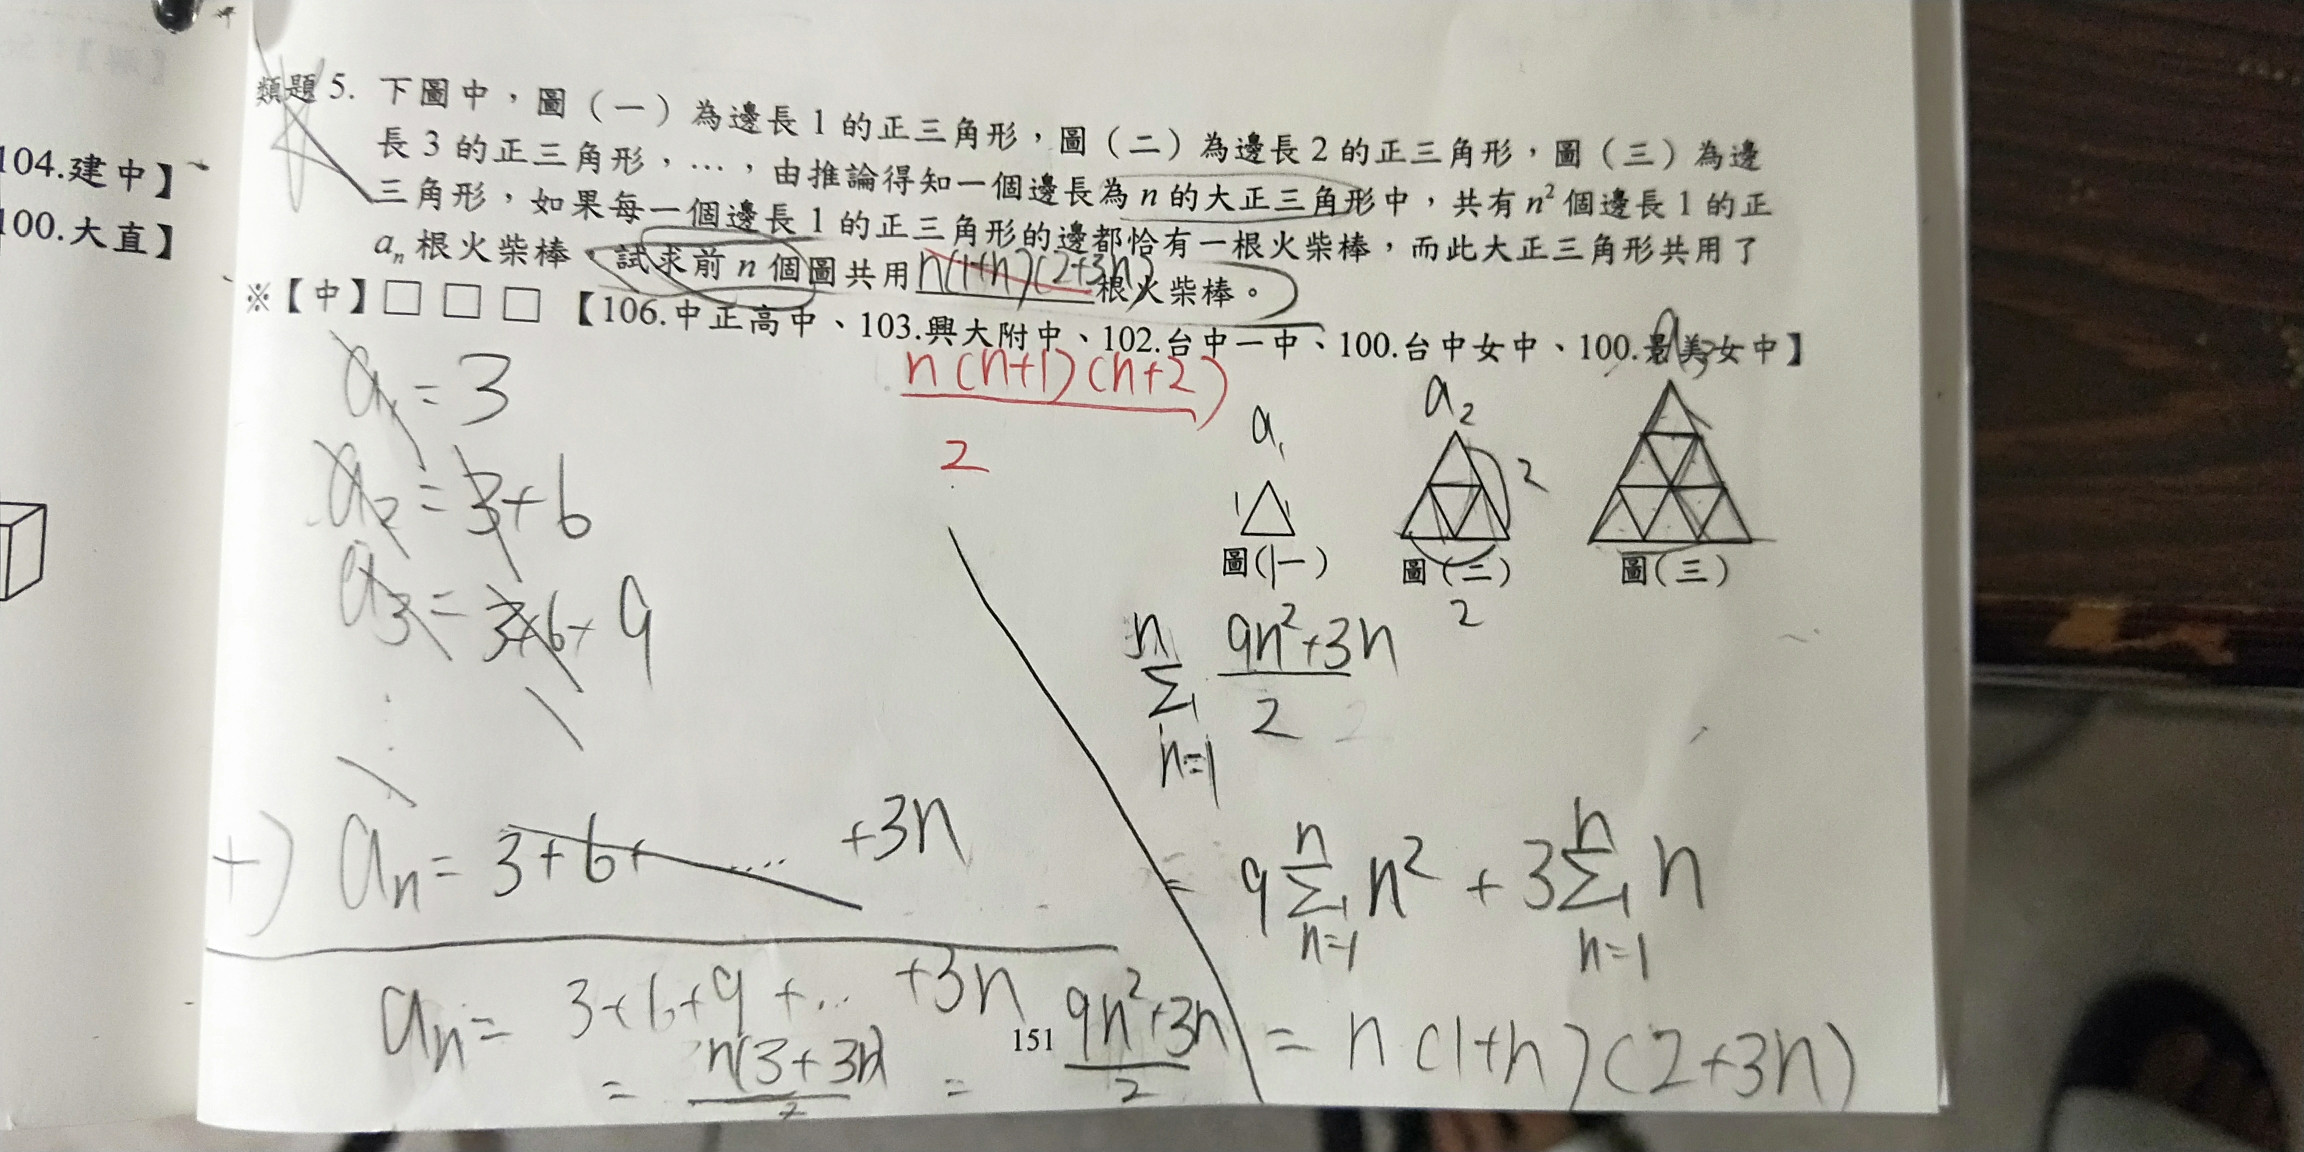 104.建中】
100.大直】
類題 5. 下圖中，圖（一）為邊長 1 的正三角形，圖（二）為邊長 2 的正三角形，圖（三）為邊
長 3 的正三角形，…，由推論得知一個邊長為 n 的大正三角形中，共有 n² 個邊長 1 的正
三角形，如果每一個邊長 1 的正三角形的邊都恰有一根火柴棒，而此大正三角形共用了
aₙ 根火柴棒，試求前 n 個圖共用 n(1+n)(2+3n) 根火柴棒。
※【中】□ □ □ 【106.中正高中、103.興大附中、102.台中一中、100.台中女中、100.景美女中】
n(n+1)(n+2)
2
a₁ = 3
a₂ = 3+6
a₃ = 3+6+9
⋮
+) aₙ = 3+6+ .... +3n
aₙ = 3+6+9+... +3n
= n(3+3n)/2 = 9n²+3n/2
a₁
a₂ 2
a₃
1
圖(一)
圖(二)
圖(三)
2
n
Σ 9n²+3n
n=1 2
= 9 Σ n² + 3 Σ n
n=1 n=1
= n(1+n)(2+3n)
151